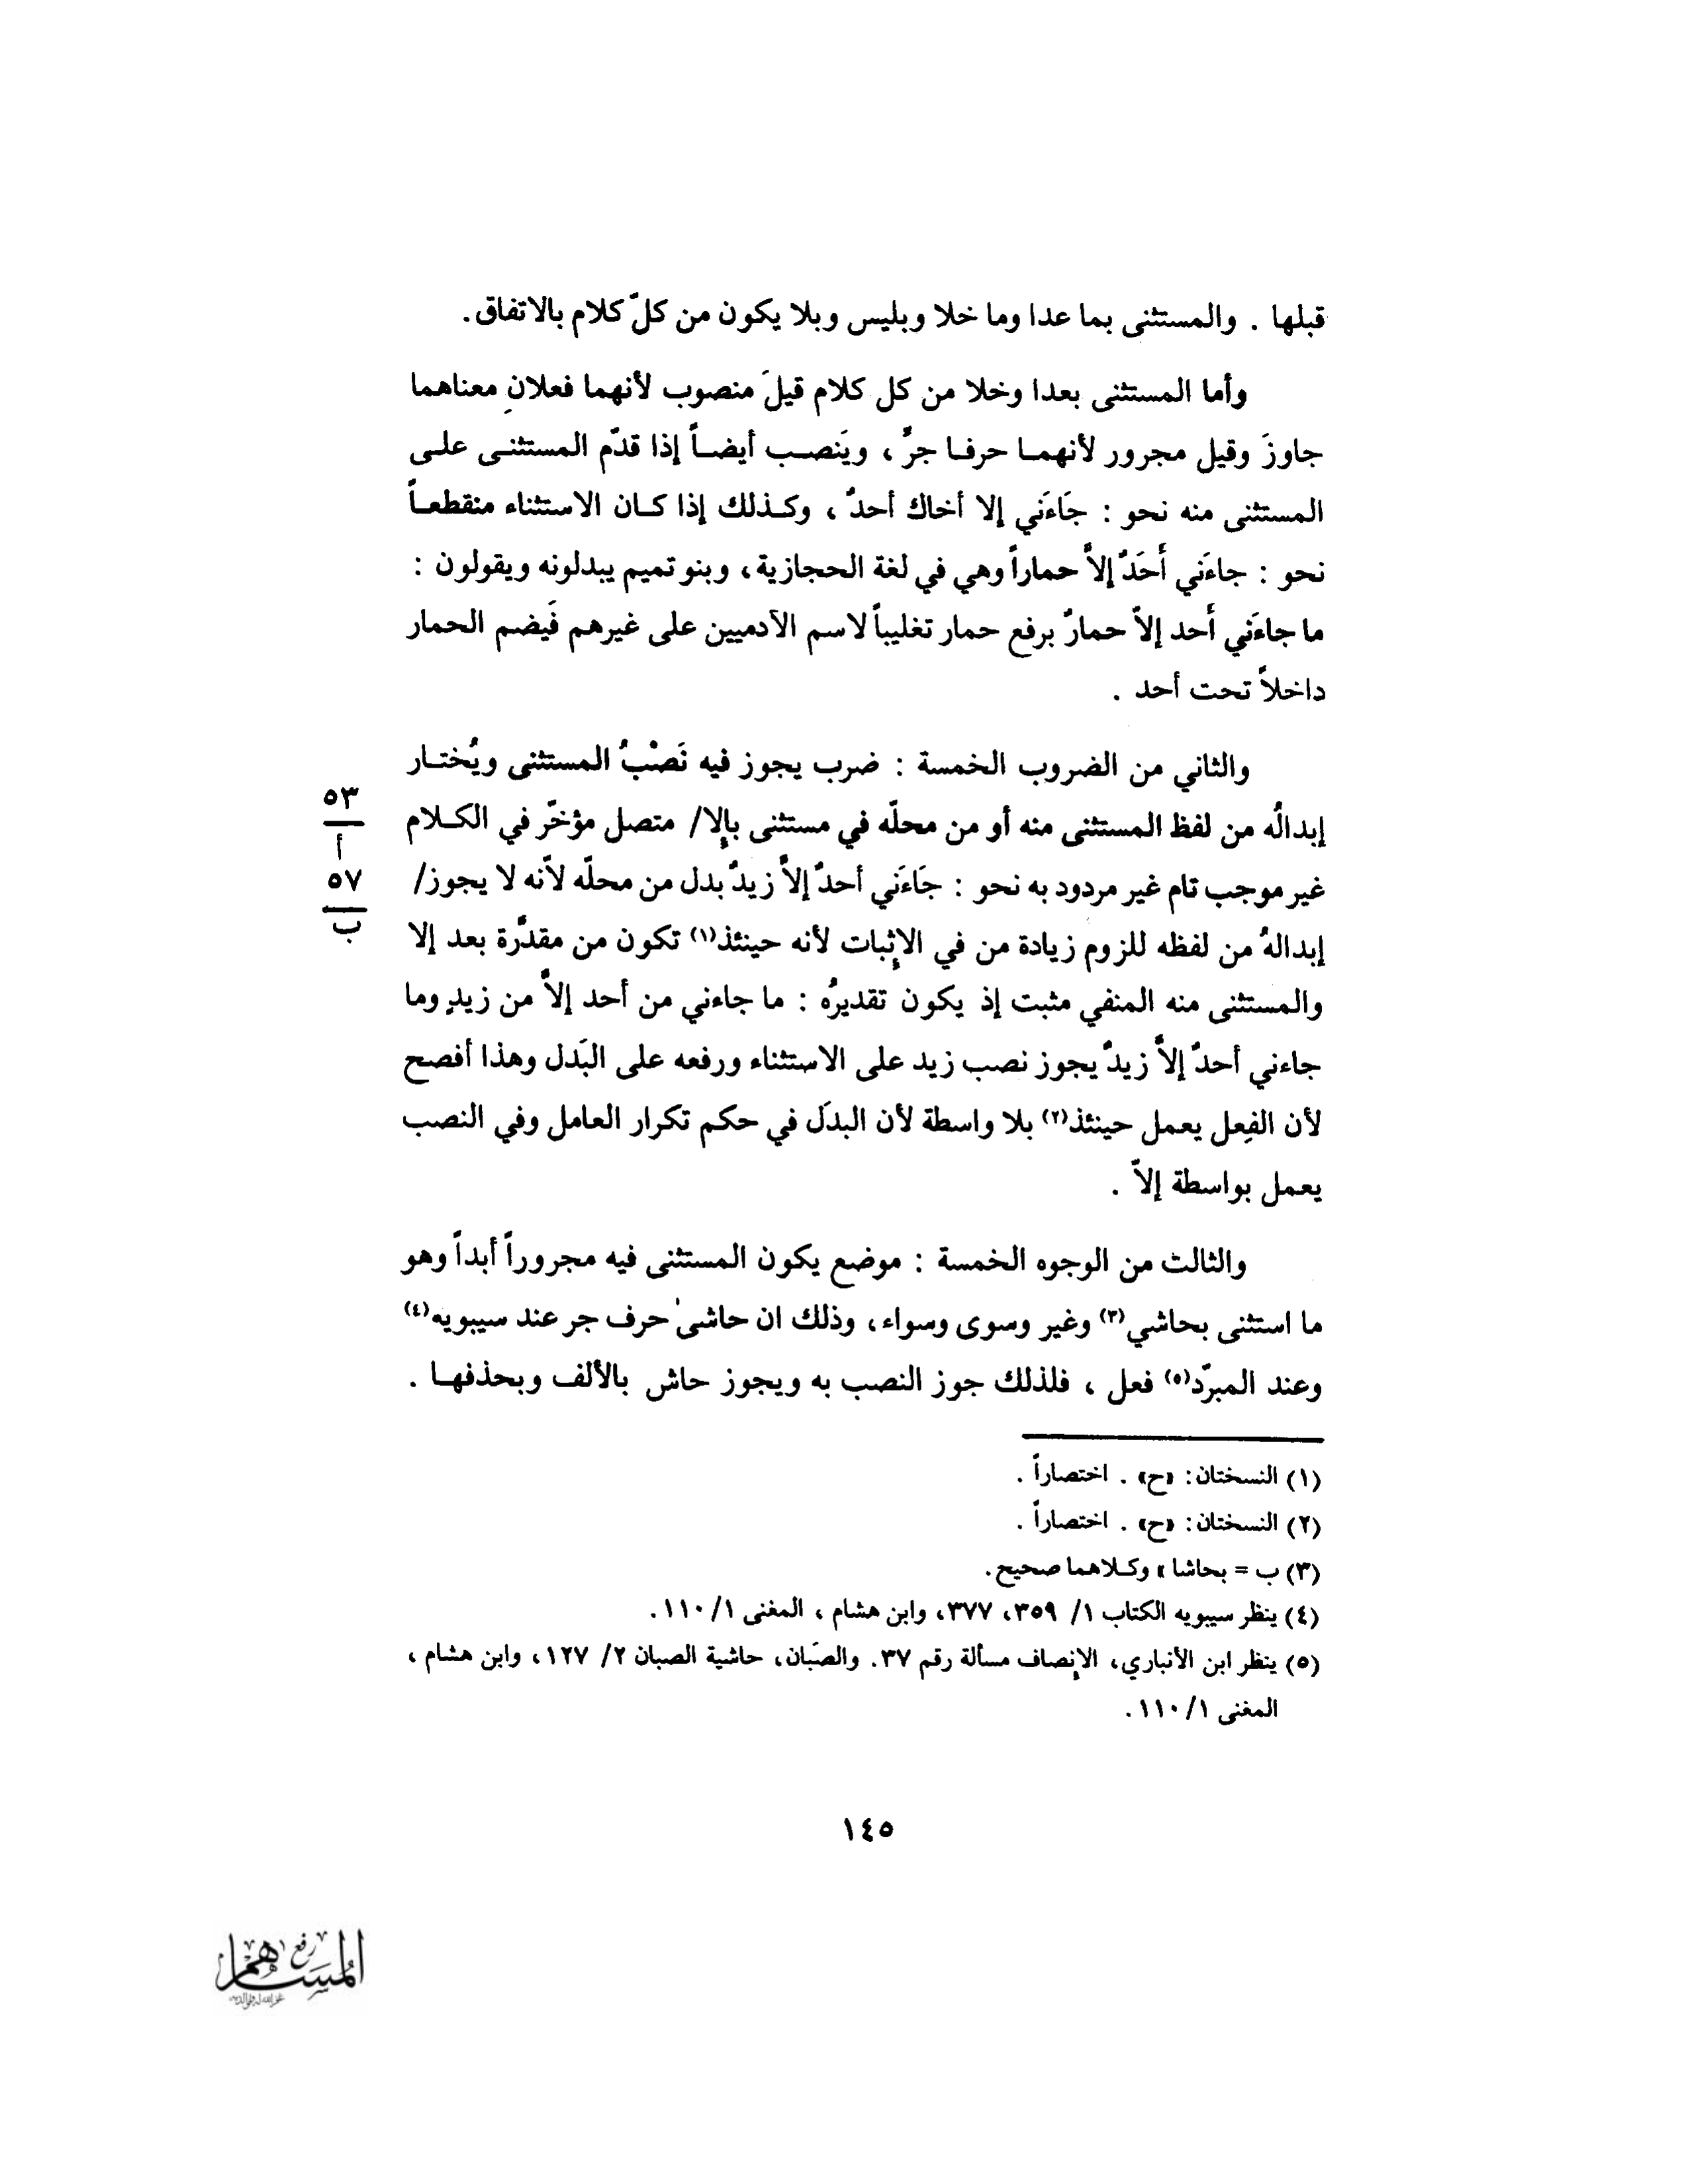 قبلها . والمستثنى بما عدا وما خلا وبليس وبلا يكون من كلّ كلام بالاتفاق.
وأما المستثنى بعدا وخلا من كل كلام قيلَ منصوب لأنهما فعلانِ معناهما
جاوزَ وقيل مجرور لأنهمـا حرفـا جرٌّ ، ويَنصـب أيضـاً إذا قدّم المستثنـى علـى
المستثنى منه نحو : جَاءَني إلا أخاك أحدٌ ، وكـذلك إذا كـان الاستثناء منقطعـاً
نحو : جاءَني أَحَدٌ إلاَّ حماراً وهي في لغة الحجازية، وبنو تميم يبدلونه ويقولون :
ما جاءَني أَحد إلاّ حمارٌ برفع حمار تغليباً لاسم الآدميين على غيرهم فَيضم الحمار
داخلاً تحت أحد .
والثاني من الضروب الخمسة : ضرب يجوز فيه نَصْبُ المستثنى ويُختـار
إبدالُه من لفظ المستثنى منه أو من محلّه في مستثنى بإلا/ متصل مؤخّر في الكـلام
٥٣
أ
غير موجب تام غير مردود به نحو : جَاءَني أحدٌ إلاَّ زيدٌ بدل من محلّه لأنّه لا يجوز/
٥٧
ب
إبدالهُ من لفظه للزوم زيادة من في الإثبات لأنه حينئذ(١) تكون من مقدّرة بعد إلا
والمستثنى منه المنفي مثبت إذ يكون تقديرُه : ما جاءني من أحد إلاَّ من زيدٍ وما
جاءني أحدٌ إلاَّ زيدٌ يجوز نصب زيد على الاستثناء ورفعه على البَدل وهذا أفصح
لأن الفِعل يعمل حينئذ(٢) بلا واسطة لأن البدَل في حكم تكرار العامل وفي النصب
يعمل بواسطة إلاّ .
والثالث من الوجوه الخمسة : موضع يكون المستثنى فيه مجروراً أبداً وهو
ما استثنى بحاشي(٣) وغير وسوى وسواء، وذلك ان حاشىٰ حرف جر عند سيبويه(٤)
وعند المبرّد(٥) فعل ، فلذلك جوز النصب به ويجوز حاش بالألف وبحذفهـا .
(١) النسختان: «ح» . اختصاراً .
(٢) النسختان: «ح» . اختصاراً .
(٣) ب = بحاشا » وكـلاهما صحيح.
(٤) ينظر سيبويه الكتاب ١/ ٣٥٩، ٣٧٧، وابن هشام ، المغنى ١/ ١١٠.
(٥) ينظر ابن الأنباري، الإنصاف مسألة رقم ٣٧. والصّبان، حاشية الصبان ٢/ ١٢٧، وابن هشام ،
المغنى ١/ ١١٠.
١٤٥
رفع
المساهم